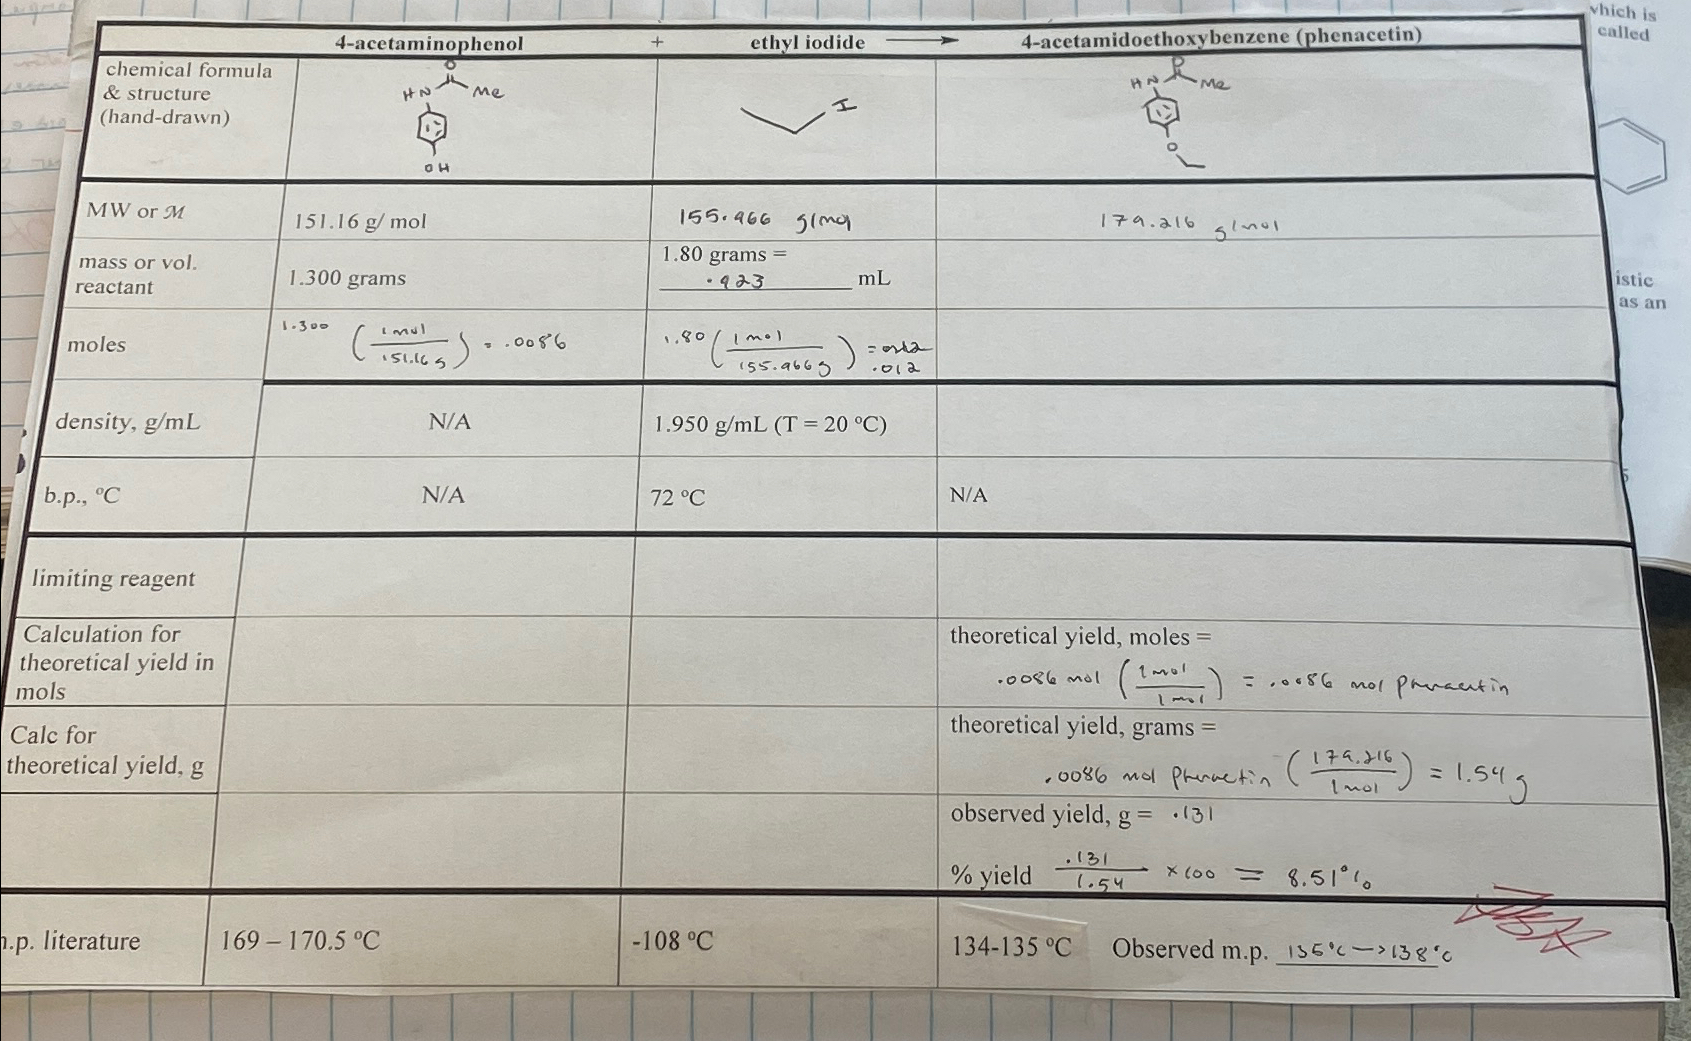 which is
called
4-acetaminophenol + ethyl iodide ⟶ 4-acetamidoethoxybenzene (phenacetin)
chemical formula
& structure
(hand-drawn)
O
HN Me
OH
I
O
HN Me
O
MW or ℳ 151.16 g/ mol 155.966 g/mol 179.216 g/mol
mass or vol.
reactant
1.300 grams
1.80 grams =
.923 mL
istic
as an
moles 1.300 (1 mol / 151.16 g) = .0086 1.80 (1 mol / 155.966 g) = .012
density, g/mL N/A 1.950 g/mL (T = 20 °C)
b.p., °C N/A 72 °C N/A
limiting reagent
Calculation for
theoretical yield in
mols
theoretical yield, moles =
.0086 mol (1 mol / 1 mol) = .0086 mol phenacetin
Calc for
theoretical yield, g
theoretical yield, grams =
.0086 mol phenacetin (179.216 / 1 mol) = 1.54 g
observed yield, g = .131
% yield .131 / 1.54 × 100 = 8.51%
.p. literature 169 – 170.5 °C -108 °C 134-135 °C Observed m.p. 135°C → 138°C